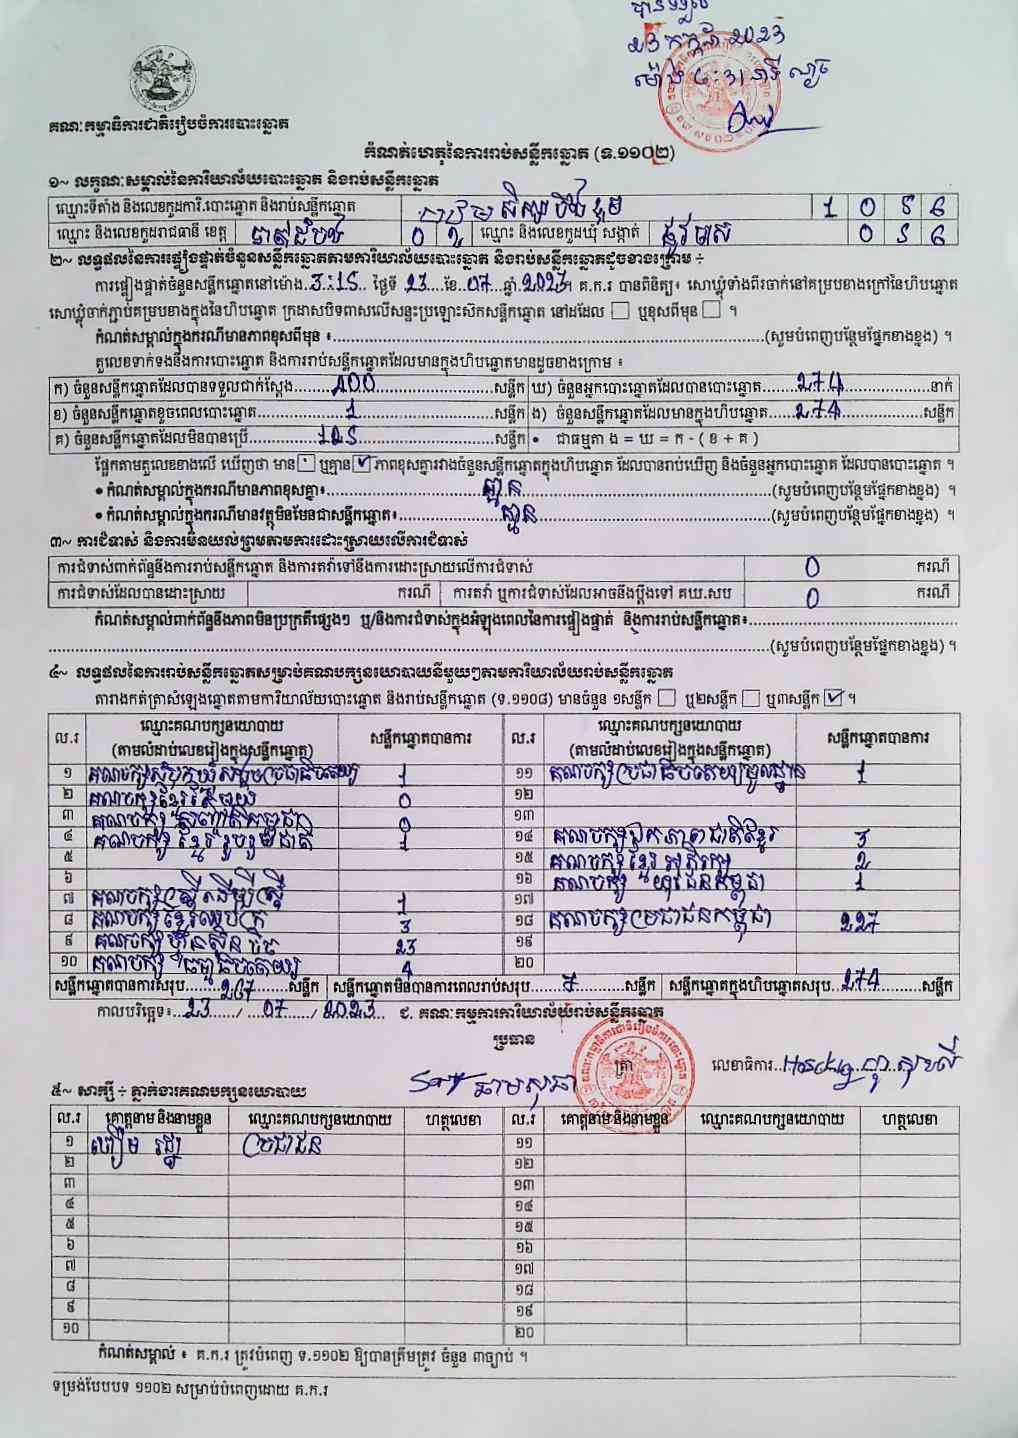 ២៣ កក្កដា 2023
គណៈកម្មាធិការជាតិរៀបចំការបោះឆ្នោត
កំណត់ហេតុនៃការរាប់សន្លឹកឆ្នោត (ទ.១១០២)
១~ លក្ខណៈសម្គាល់នៃការិយាល័យបោះឆ្នោត និងរាប់សន្លឹកឆ្នោត
ឈ្មោះទីតាំង និងលេខកូដការិ.បោះឆ្នោត និងរាប់សន្លឹកឆ្នោត 1 0 5 6
ឈ្មោះ និងលេខកូដរាជធានី ខេត្ត បាត់ដំបង 0 2 ឈ្មោះ និងលេខកូដឃុំ សង្កាត់ 0 5 6
២~ លទ្ធផលនៃការផ្ទៀងផ្ទាត់ចំនួនសន្លឹកឆ្នោតតាមការិយាល័យបោះឆ្នោត និងរាប់សន្លឹកឆ្នោតដូចខាងក្រោម ÷
ការផ្ទៀងផ្ទាត់ចំនួនសន្លឹកឆ្នោតនៅម៉ោង..3:15.. ថ្ងៃទី 23 ...ខែ..07...ឆ្នាំ.2023។ គ.ក.រ បានពិនិត្យ៖ សោឃ្លុំទាំងពីរចាក់នៅគម្របខាងក្រៅនៃហិបឆ្នោត
សោឃ្លុំចាក់ភ្ជាប់គម្របខាងក្នុងនៃហិបឆ្នោត ក្រដាសបិទពាសលើសន្ទះប្រឡោះស៊កសន្លឹកឆ្នោត នៅដដែល □ ឬខុសពីមុន □ ។
កំណត់សម្គាល់ក្នុងករណីមានភាពខុសពីមុន ៖...(សូមបំពេញបន្ថែមផ្នែកខាងខ្នង) ។
តួលេខទាក់ទងនឹងការបោះឆ្នោត និងការរាប់សន្លឹកឆ្នោតដែលមានក្នុងហិបឆ្នោតមានដូចខាងក្រោម ៖
ក) ចំនួនសន្លឹកឆ្នោតដែលបានទទួលជាក់ស្តែង....400....សន្លឹក ឃ) ចំនួនអ្នកបោះឆ្នោតដែលបានបោះឆ្នោត....274....នាក់
ខ) ចំនួនសន្លឹកឆ្នោតខូចពេលបោះឆ្នោត....1....សន្លឹក ង) ចំនួនសន្លឹកឆ្នោតដែលមានក្នុងហិបឆ្នោត....274....សន្លឹក
គ) ចំនួនសន្លឹកឆ្នោតដែលមិនបានប្រើ....125....សន្លឹក • ជាធម្មតា ង = ឃ = ក - ( ខ + គ )
ផ្អែកតាមតួលេខខាងលើ ឃើញថា មាន □ ឬគ្មាន ☑ ភាពខុសគ្នារវាងចំនួនសន្លឹកឆ្នោតក្នុងហិបឆ្នោត ដែលបានរាប់ឃើញ និងចំនួនអ្នកបោះឆ្នោត ដែលបានបោះឆ្នោត ។
• កំណត់សម្គាល់ក្នុងករណីមានភាពខុសគ្នា៖....គ្មាន....(សូមបំពេញបន្ថែមផ្នែកខាងខ្នង) ។
• កំណត់សម្គាល់ក្នុងករណីមានវត្ថុមិនមែនជាសន្លឹកឆ្នោត៖....គ្មាន....(សូមបំពេញបន្ថែមផ្នែកខាងខ្នង) ។
៣~ ការជំទាស់ និងការមិនយល់ព្រមតាមការដោះស្រាយលើការជំទាស់
ការជំទាស់ពាក់ព័ន្ធនឹងការរាប់សន្លឹកឆ្នោត និងការតវ៉ាទៅនឹងការដោះស្រាយលើការជំទាស់ 0 ករណី
ការជំទាស់ដែលបានដោះស្រាយ ករណី ការតវ៉ា ឬការជំទាស់ដែលអាចនឹងប្តឹងទៅ គឃ.សប 0 ករណី
កំណត់សម្គាល់ពាក់ព័ន្ធនឹងភាពមិនប្រក្រតីផ្សេងៗ ឬ/និងការជំទាស់ក្នុងអំឡុងពេលនៃការផ្ទៀងផ្ទាត់ និងការរាប់សន្លឹកឆ្នោត៖...
...(សូមបំពេញបន្ថែមផ្នែកខាងខ្នង) ។
៤~ លទ្ធផលនៃការរាប់សន្លឹកឆ្នោតសម្រាប់គណបក្សនយោបាយនីមួយៗតាមការិយាល័យរាប់សន្លឹកឆ្នោត
តារាងកត់ត្រាសំឡេងឆ្នោតតាមការិយាល័យបោះឆ្នោត និងរាប់សន្លឹកឆ្នោត (ទ.១១០៨) មានចំនួន ១សន្លឹក □ ឬ២សន្លឹក □ ឬ៣សន្លឹក ☑ ។
ល.រ ឈ្មោះគណបក្សនយោបាយ (តាមលំដាប់លេខរៀងក្នុងសន្លឹកឆ្នោត) សន្លឹកឆ្នោតបានការ ល.រ ឈ្មោះគណបក្សនយោបាយ (តាមលំដាប់លេខរៀងក្នុងសន្លឹកឆ្នោត) សន្លឹកឆ្នោតបានការ
១ គណបក្សសំបុកឃ្មុំសង្គមប្រជាធិបតេយ្យ 1 ១១ គណបក្សប្រជាធិបតេយ្យមូលដ្ឋាន 1
២ គណបក្សខ្មែរតែមួយ 0 ១២
៣ គណបក្ស 0 ១៣
៤ គណបក្ស ខ្មែររួបរួមជាតិ 1 ១៤ គណបក្សឯកភាពជាតិខ្មែរ 3
៥ ១៥ គណបក្សខ្មែរអភិរក្ស 2
៦ ១៦ គណបក្ស យុវជនកម្ពុជា 1
៧ គណបក្សស្ត្រីដើម្បីស្ត្រី 1 ១៧
៨ គណបក្សខ្មែរឈប់ក្រ 3 ១៨ គណបក្សប្រជាជនកម្ពុជា 227
៩ គណបក្ស ហ្វ៊ុនស៊ិនប៉ិច 23 ១៩
១០ គណបក្ស ធម្មាធិបតេយ្យ 4 ២០
សន្លឹកឆ្នោតបានការសរុប....267....សន្លឹក សន្លឹកឆ្នោតមិនបានការពេលរាប់សរុប....7....សន្លឹក សន្លឹកឆ្នោតក្នុងហិបឆ្នោតសរុប..274....សន្លឹក
កាលបរិច្ឆេទ៖..23..../....07..../2023.. ជ. គណៈកម្មការការិយាល័យរាប់សន្លឹកឆ្នោត
ប្រធាន
ត្រា លេខាធិការ
៥~ សាក្សី ÷ ភ្នាក់ងារគណបក្សនយោបាយ
ល.រ គោត្តនាម និងនាមខ្លួន ឈ្មោះគណបក្សនយោបាយ ហត្ថលេខា ល.រ គោត្តនាម និងនាមខ្លួន ឈ្មោះគណបក្សនយោបាយ ហត្ថលេខា
១ ប្រជាជន ១១
២ ១២
៣ ១៣
៤ ១៤
៥ ១៥
៦ ១៦
៧ ១៧
៨ ១៨
៩ ១៩
១០ ២០
កំណត់សម្គាល់ ៖ គ.ក.រ ត្រូវបំពេញ ទ.១១០២ ឱ្យបានត្រឹមត្រូវ ចំនួន ៣ច្បាប់ ។
ទម្រង់បែបបទ ១១០២ សម្រាប់បំពេញដោយ គ.ក.រ